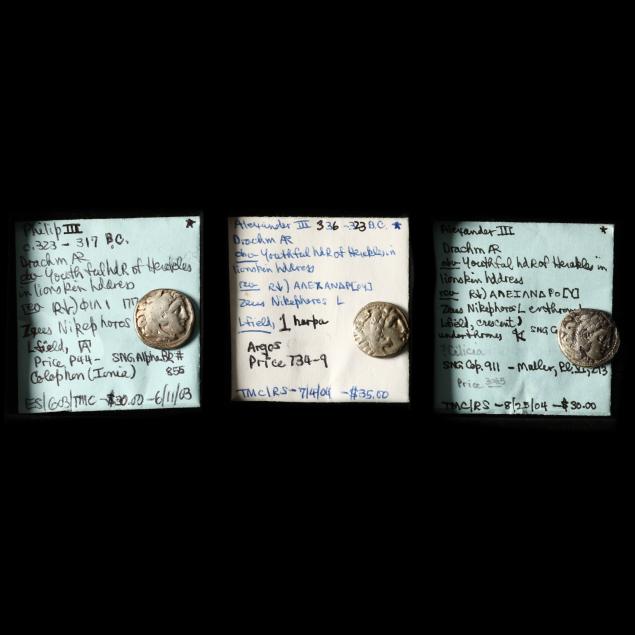 Philip III
c.323 - 317 B.C.
Drachm AR
obv Youthful hd R of Herakles
in lionskin hddress
rev R↓) ΦΙΛΙ
Zeus Nikephoros
L field,
Price P44 - SNG Alpha Bk #
Colophon (Ionia) 855
ES/G03/TMC - $30.00 - 6/11/03
Alexander III 336 - 323 B.C. *
Drachm AR
obv Youthful hd R of Herakles in
lionskin hddress
rev R↓) ΑΛΕΞΑΝΔΡ[ΟΥ]
Zeus Nikephoros L
L field, 1 harpa
Argos
Price 734-9
TMC/RS - 7/4/04 - $35.00
Alexander III *
Drachm AR
obv Youthful hd R of Herakles in
lionskin hddress
rev R↓) ΑΛΕΞΑΝΔΡΟ[Υ]
Zeus Nikephoros L enthroned
L field, crescent )
under throne SNG
SNG Cop. 911 - Muller, Pl. 213
Price
TMC/RS - 8/25/04 - $30.00